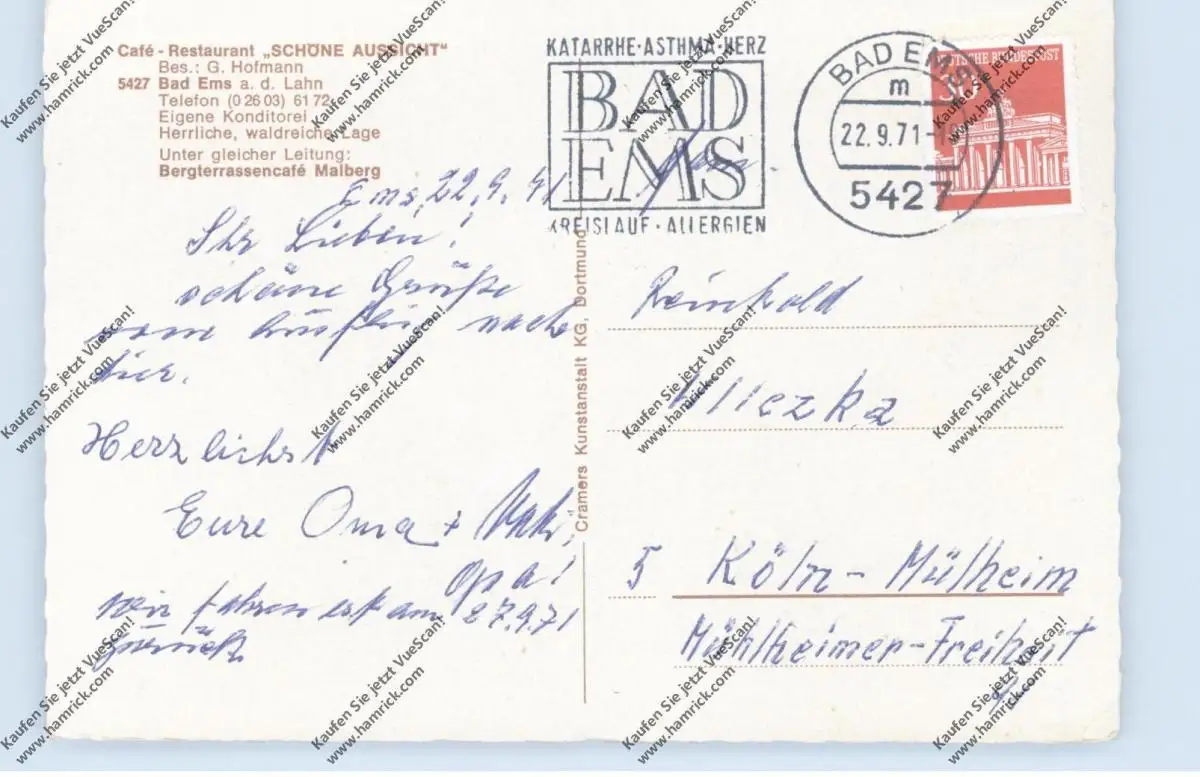 Café - Restaurant „SCHÖNE AUSSICHT"
Bes.: G. Hofmann
5427 Bad Ems a. d. Lahn
Telefon (0 26 03) 61 72
Eigene Konditorei
Herrliche, waldreiche Lage
Unter gleicher Leitung:
Bergterrassencafé Malberg
KATARRHE·ASTHMA·HERZ
BAD
EMS
KREISLAUF·ALLERGIEN
BAD EMS
m
22.9.71
5427
DEUTSCHE BUNDESPOST
30
Ems, 22.9.71
Ihr Lieben!
schöne Grüße
vom Ausflug nach
hier.
Herzlichst
Eure Oma +
Opa!
wir fahren erst am 27.9.71
zurück
Cramers Kunstanstalt KG, Dortmund
Reinhold
Wliczka
5 Köln-Mülheim
Mühlheimer-Freiheit
Kaufen Sie jetzt VueScan!
www.hamrick.com